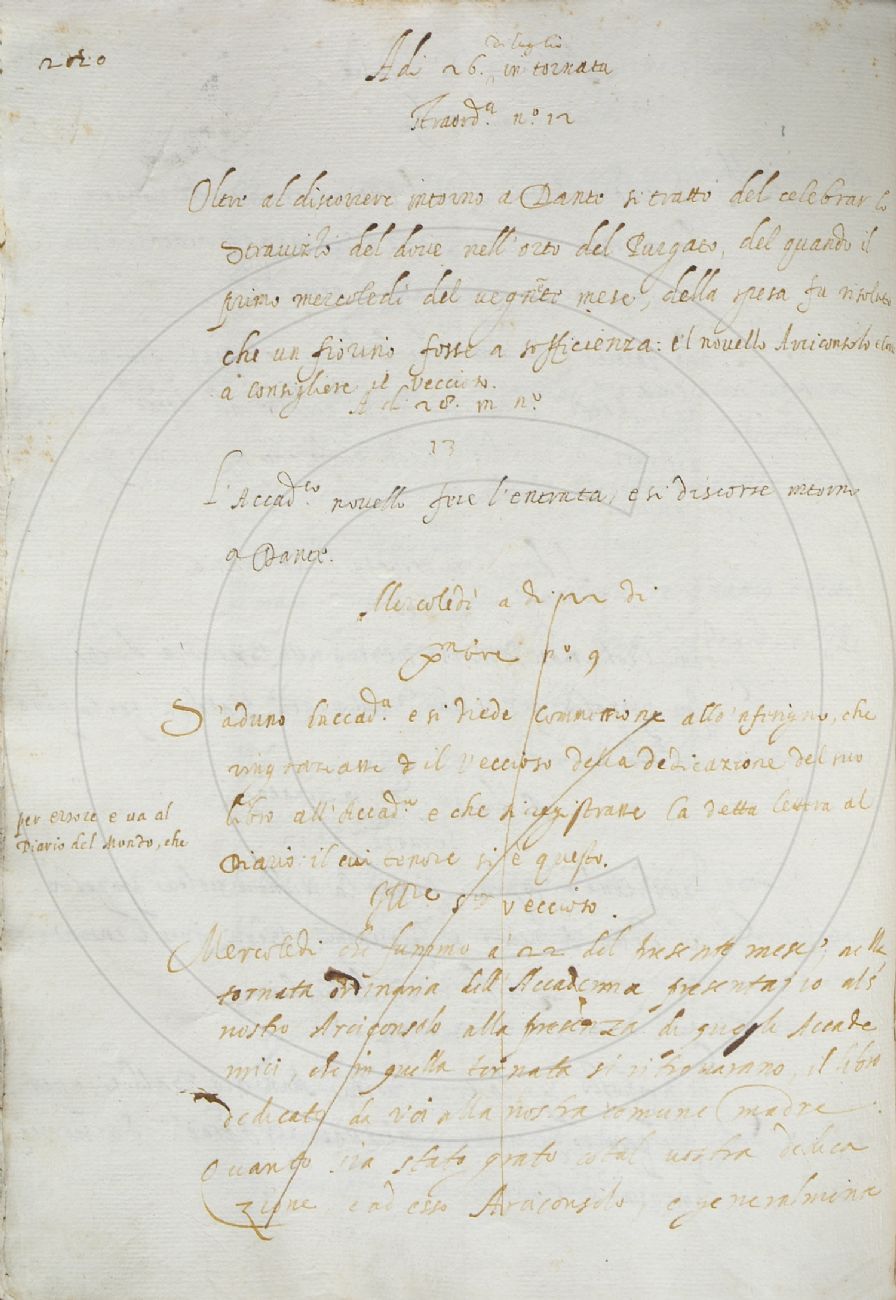 Adi 26. di luglio in tornata
straord.a n.o 12
Oltre al discorrere intorno a Dante si trattò del celebrar lo
stravizzo del dove nell'orto del Purgato, del quando il
primo mercoledì del vegn.te mese, della spesa fu risoluto
che un fiorino fosse a sofficienza: e'l novello Arciconsolo
a consigliere il Veccioso.
A di 28. in n.o
13
L'Accad.co novello fece l'entrata, e si discorse intorno
a Dante.
Mercoledì a dì 22 di
n.o 9
S'adunò l'accad.a e si diede commessione allo 'nferigno, che
ringraziasse il Veccioso della dedicazione del suo
libro all'Accad.a e che si registrasse la detta lettera al
per errore e va al
Diario del Mondo, che
Diario il cui tenore si è questo.
Ill.re s.r Veccioso.
Mercoledì che fummo a' 22 del presente mese, nella
tornata ordinaria dell'Accademia presentai io al
nostro Arciconsolo alla presenza di quegli Accade
mici, che in quella tornata si ritrovarano, il libro
dedicato da voi alla nostra comune madre.
Quanto sia stato grato cotal vostra dedica
zione, e ad esso Arciconsolo, e generalmina